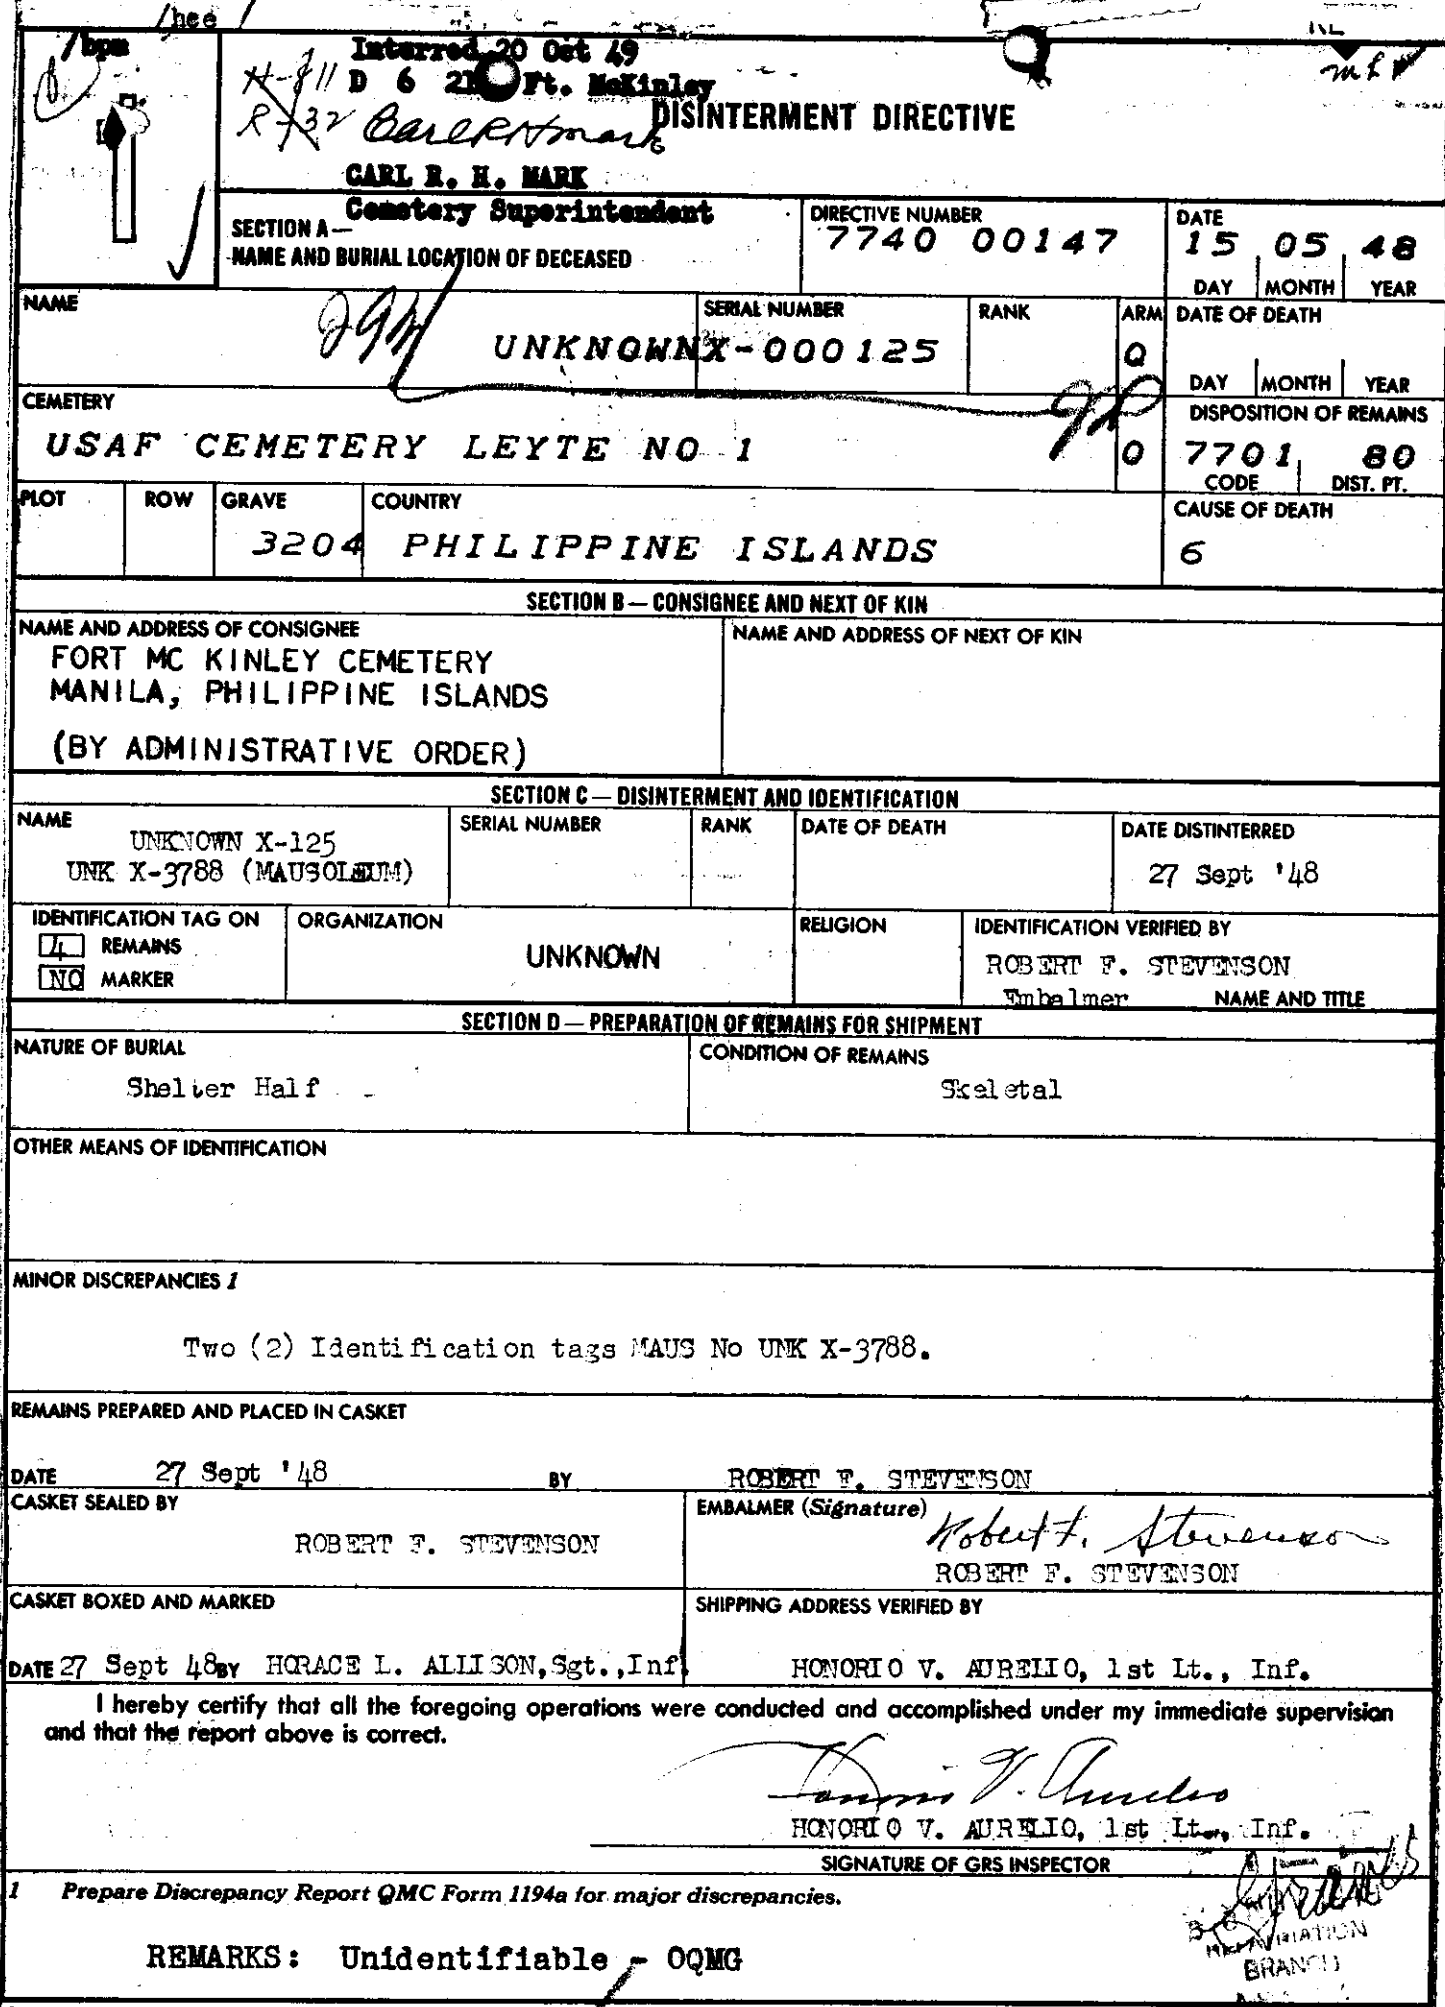 /hee
/bpm
Interred 20 Oct 49
D 6 Ft. McKinley
R-132
DISINTERMENT DIRECTIVE
CARL R. H. MARK
Cemetery Superintendent
SECTION A—
NAME AND BURIAL LOCATION OF DECEASED
DIRECTIVE NUMBER
7740 00147
DATE
15 05 48
DAY MONTH YEAR
NAME
UNKNOWN
SERIAL NUMBER
X-000125
RANK
ARM
Q
DATE OF DEATH
DAY MONTH YEAR
CEMETERY
USAF CEMETERY LEYTE NO 1
O
DISPOSITION OF REMAINS
7701 80
CODE DIST. PT.
PLOT ROW GRAVE COUNTRY
3204 PHILIPPINE ISLANDS
CAUSE OF DEATH
6
SECTION B — CONSIGNEE AND NEXT OF KIN
NAME AND ADDRESS OF CONSIGNEE
FORT MC KINLEY CEMETERY
MANILA, PHILIPPINE ISLANDS
(BY ADMINISTRATIVE ORDER)
NAME AND ADDRESS OF NEXT OF KIN
SECTION C — DISINTERMENT AND IDENTIFICATION
NAME
UNKNOWN X-125
UNK X-3788 (MAUSOLEUM)
SERIAL NUMBER
RANK
DATE OF DEATH
DATE DISTINTERRED
27 Sept '48
IDENTIFICATION TAG ON
4 REMAINS
NO MARKER
ORGANIZATION
UNKNOWN
RELIGION
IDENTIFICATION VERIFIED BY
ROBERT F. STEVENSON
Embalmer NAME AND TITLE
SECTION D — PREPARATION OF REMAINS FOR SHIPMENT
NATURE OF BURIAL
Shelter Half -
CONDITION OF REMAINS
Skeletal
OTHER MEANS OF IDENTIFICATION
MINOR DISCREPANCIES 1
Two (2) Identification tags MAUS No UNK X-3788.
REMAINS PREPARED AND PLACED IN CASKET
DATE 27 Sept '48 BY ROBERT F. STEVENSON
CASKET SEALED BY
ROBERT F. STEVENSON
EMBALMER (Signature)
Robert F. Stevenson
ROBERT F. STEVENSON
CASKET BOXED AND MARKED
DATE 27 Sept 48 BY HORACE L. ALLISON, Sgt., Inf
SHIPPING ADDRESS VERIFIED BY
HONORIO V. AURELIO, 1st Lt., Inf.
I hereby certify that all the foregoing operations were conducted and accomplished under my immediate supervision
and that the report above is correct.
Honorio V. Aurelio
HONORIO V. AURELIO, 1st Lt., Inf.
SIGNATURE OF GRS INSPECTOR
1 Prepare Discrepancy Report QMC Form 1194a for major discrepancies.
REPATRIATION
BRANCH
REMARKS: Unidentifiable - OQMG